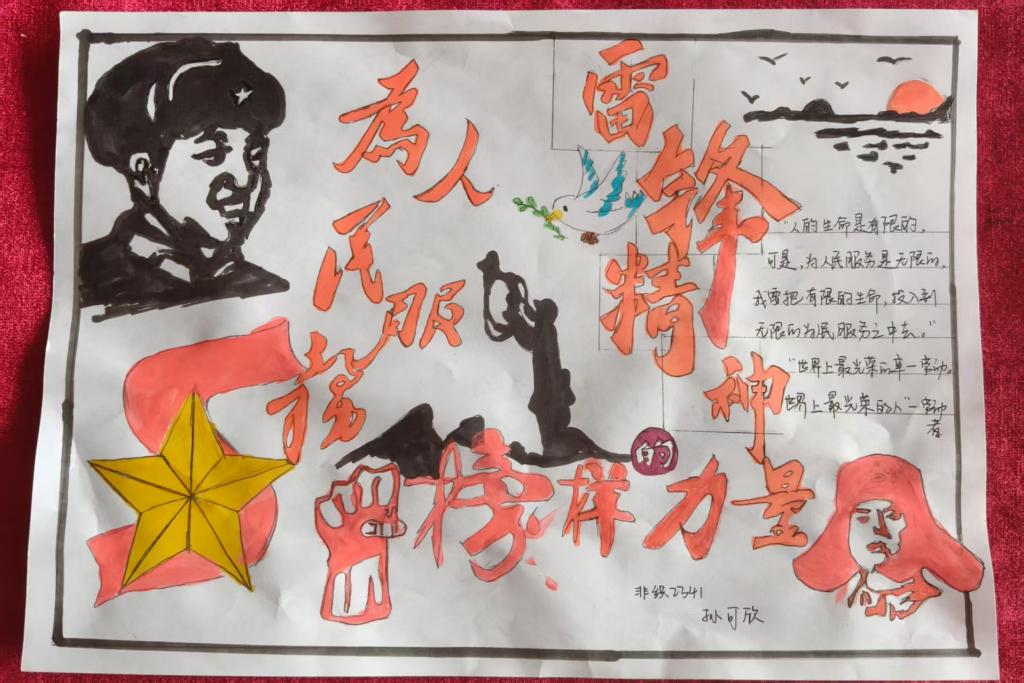 為人民服務
雷锋精神
"人的生命是有限的,
可是,为人民服务是无限的,
我要把有限的生命,投入到
无限的为民服务之中去。"
"世界上最光荣的事—劳动。
世界上最光荣的人"—劳动
者
榜样的力量
非织2341
孙可欣